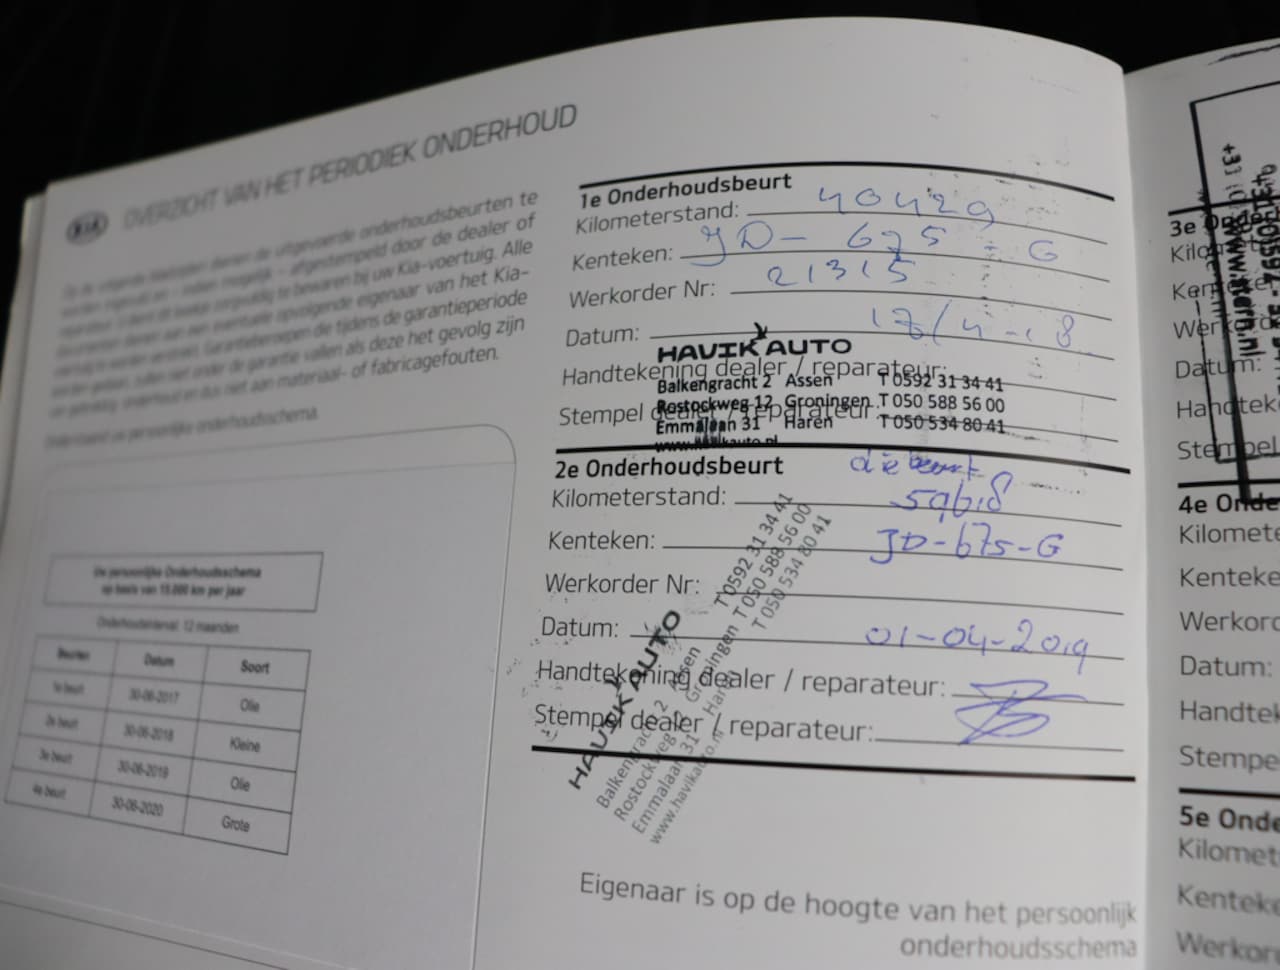 KIA OVERZICHT VAN HET PERIODIEK ONDERHOUD
Op de volgende bladzijden dienen de uitgevoerde onderhoudsbeurten te
worden ingevuld en - indien mogelijk - afgestempeld door de dealer of
reparateur. U dient dit boekje zorgvuldig te bewaren bij uw Kia-voertuig. Alle
van het Kia-
voertuig te worden verstrekt. Garantieberoepen die tijdens de garantieperiode
worden gedaan, zullen niet onder de garantie vallen als deze het gevolg zijn
van gebrekkig onderhoud en dus niet aan materiaal- of fabricagefouten.
Onderstaand uw persoonlijke onderhoudsschema.
Uw persoonlijke Onderhoudsschema
op basis van 15.000 km per jaar
Onderhoudsinterval: 12 maanden
Beurten Datum Soort
1e beurt 30-06-2017 Olie
2e beurt 30-06-2018 Kleine
3e beurt 30-06-2019 Olie
4e beurt 30-06-2020 Grote
1e Onderhoudsbeurt
Kilometerstand: 40429
Kenteken: JD-675-G
Werkorder Nr: 21315
Datum: 17/4-18
HAVIK AUTO
Handtekening dealer / reparateur:
Balkengracht 2 Assen T 0592 31 34 41
Rostockweg 12 Groningen T 050 588 56 00
Stempel dealer / reparateur:
Emmalaan 31 Haren T 050 534 80 41
www.havikauto.nl
2e Onderhoudsbeurt olie beurt
Kilometerstand: 59618
Kenteken: JD-675-G
Werkorder Nr:
Datum: 01-04-2019
Handtekening dealer / reparateur:
Stempel dealer / reparateur:
HAVIK AUTO
Balkengracht 2 Assen T 0592 31 34 41
Rostockweg 12 Groningen T 050 588 56 00
Emmalaan 31 Haren T 050 534 80 41
www.havikauto.nl
Eigenaar is op de hoogte van het persoonlijk
onderhoudsschema
3e Onder
Kilo
Kenteke
Werkord
Datum:
Handtek
Stempel
www.stern.nl
4e Onde
Kilomete
Kenteke
Werkorc
Datum:
Handtel
Stempe
5e Onde
Kilomet
Kenteke
Werkor